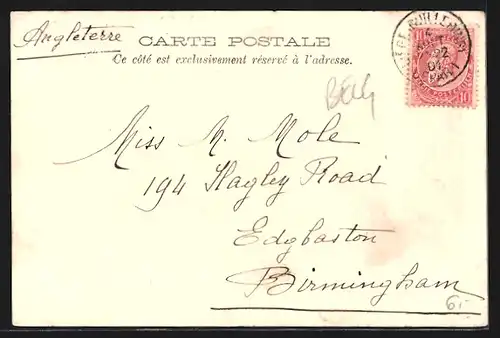 Angleterre
CARTE POSTALE
Ce côté est exclusivement réservé à l'adresse.
Miss M. Mole
194 Hagley Road
Edgbaston
Birmingham
6.-